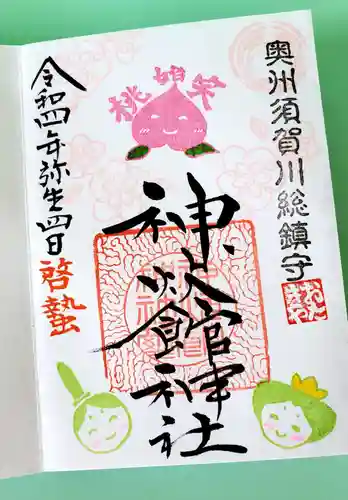 奥州須賀川総鎮守
桃始笑
神炊館神社
令和四年弥生四日
啓蟄